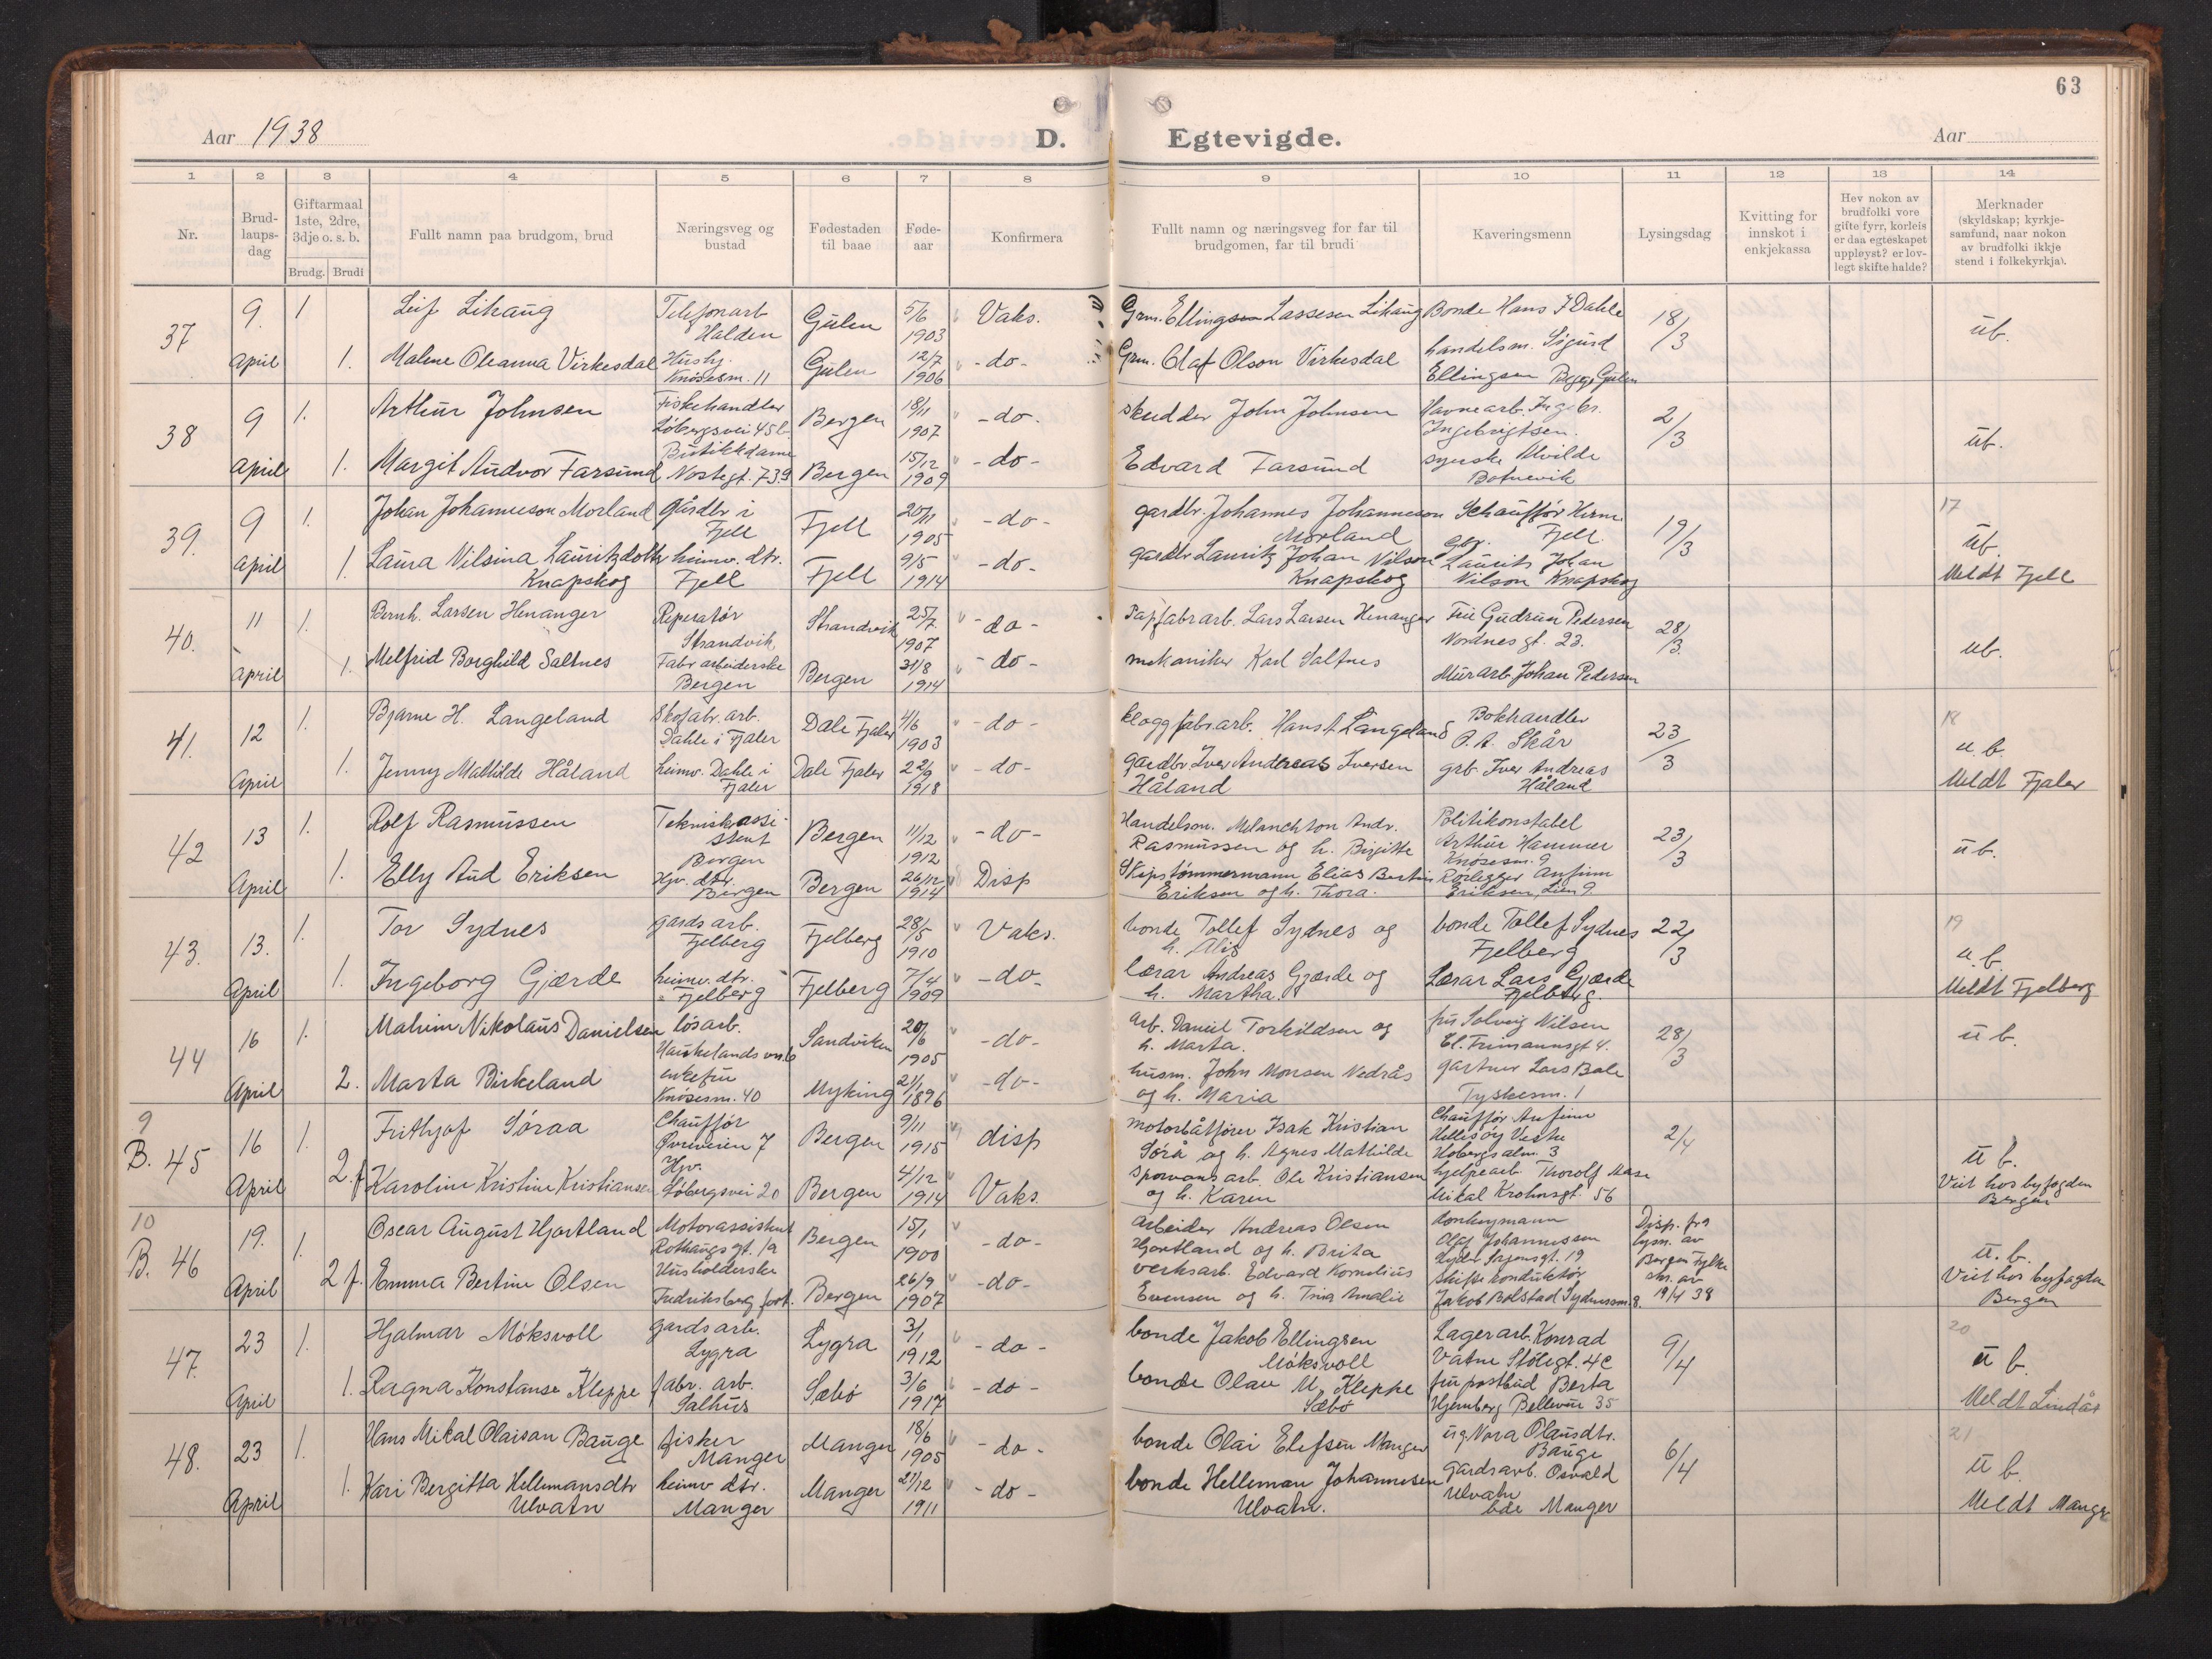 63
Aar 1938
D. Egtevigde.
Aar
1 2 3 4 5 6 7 8 9 10 11 12 13 14
Nr.
Brud-
laups-
dag
Giftarmaal
1ste, 2dre,
3dje o. s. b.
Brudg. Brudi
Fullt namn paa brudgom, brud
Næringsveg og
bustad
Fødestaden
til baae
Føde-
aar
Konfirmera
Fullt namn og næringsveg for far til
brudgomen, far til brudi
Kaveringsmenn
Lysingsdag
Kvitting for
innskot i
enkjekassa
Hev nokon av
brudfolki vore
gifte fyrr, korleis
er daa egteskapet
uppløyst? er lov-
legt skifte halde?
Merknader
(skyldskap; kyrkje-
samfund, naar nokon
av brudfolki ikkje
stend i folkekyrkja).
37
9. April
1. Leif Lihaug
Telefonarb
Halden
Gulen
5/6 1903
Vaks.
Grm. Ellingsen Lassesen Lihaug
Bonde Hans J Dahle
18/3
ub.
1. Malene Oleanna Virkesdal
Hush.
Knøsesm. 11
Gulen
12/7 1906
- do -
Grm. Olaf Olson Virkesdal
handelsm. Sigurd
Ellingsen Begge Gulen
38
9 April
1. Arthur Johnsen
Fiskehandler
Løbergsvei 45 b.
Bergen
18/11 1907
- do.
skudder John Johnsen
Havnearb. Ingebr.
Ingebrigtsen.
2/3
ub.
1. Margit Audvor Farsund
Butikkdame
Nostegt. 73.9
Bergen
15/12 1909
- do -
Edvard Farsund
syerske Alvilde
Botnevik
39.
9 April
1. Johan Johanneson Morland
gårdbr i
Fjell
Fjell
20/11 1905
- do -
gardbr. Johannes Johanneson
Morland
Schauffør Herm.
Fjell.
19/3
17
ub.
Meldt Fjell
1. Laura Nilsina Lauritzdotter
Knapskog
heimv. dtr.
Fjell
Fjell
9/5 1914
- do.
gardbr Lauritz Johan Nilson
Knapskog
gbr. Laurits Johan
Nilson Knapskog
40.
11 April
1. Bernh. Larsen Henanger
Reperatør
Strandvik
Strandvik
25/7. 1907
- do -
Papfabrarb. Lars Larsen Henanger
Frü Gudrun Pedersen
Nordnesgt. 23.
28/3.
ub.
1. Melfrid Borghild Saltnes
Fabr arbeiderske
Bergen
Bergen
31/8 1914
- do -
mekaniker Karl Saltnes
Murarb. Johan Pedersen
41.
12 April
1. Bjarne H. Langeland
Skofabr. arb.
Dahle i Fjaler
Dale Fjaler
4/6 1903
- do -
kloggfabrarb. Hans A. Langeland
Bokhandler
P. A. Skår
23/3
18
u. b.
Meldt Fjaler
1. Jenny Mathilde Håland
heimv. Dahle i
Fjaler
Dale Fjaler
22/9 1918
- do -
gardbr Iver Andreas Iversen
Håland
grb. Iver Andreas
Håland
42
13 April
1. Rolf Rasmussen
Teknisk assi-
stent
Bergen
Bergen
11/12 1912
- do -
Handelsm. Melanchton Andr.
Rasmussen og h. Birgitte
Politikonstabel
Arthur Hammer
Knøsesm. 9
23/3
ub.
1. Elly Aud Eriksen
Hjv. dtr.
Bergen
Bergen
26/12 1914
Disp
Skipstømmermann Elias Bertin
Eriksen og h. Thora.
Rørlegger Anfinn
Eriksen, Lien 9
43.
13. April
1. Tor Sydnes
gards arb.
Fjelberg
Fjelberg
28/5 1910
Vaks.
bonde Tollef Sydnes og
h. Alis
bonde Tollef Sydnes
Fjelberg
22/3
19
u. b.
Meldt Fjelberg
1. Ingeborg Gjærde
heimv. dtr.
Fjelberg
Fjelberg
7/4 1909
- do -
Lærar Andreas Gjærde og
h. Martha.
Lærar Lars Gjærde
Fjelberg.
44
16 April
1. Malvin Nikolaus Danielsen
løsarb.
Haukelandsvn. 6
Sandviken
20/6 1905
- do -
Arb. Daniel Torkildsen og
h. Marta.
fru Solveig Nilsen
El. Frimannsgt 4.
28/3
u b.
2. Marta Birkeland
enkefru
Knøsesm. 40
Myking
21/1 1896
- do -
husm. John Monsen Nedrås
og h. Maria
gartner Lars Bale
Tyskesm. 1
9
B. 45
16 April
1. Frithjof Søraa
Chauffør
Øvreveien 7
Bergen
9/11 1915
disp
motorbåtfører Isak Kristian
Sørå og h. Agnes Mathilde
Chauffør Anfinn
Hellesøy Vestre
Hobergsalm. 3
2/4
u b.
Viet hos byfogden
Bergen
2.f Karoline Kristine Kristiansen
Hjv.
Løbergsvei 20
Bergen
4/12 1914
Vaks.
sporvans arb. Ole Kristiansen
og h. Karen
hjelpearb. Thorolf Aase
Mikal Krohnsgt. 56
10
B. 46
19. April
1. Oscar August Hjortland
Motorassistent
Rothaugsgt. 1a
Bergen
15/1 1900
- do -
Arbeider Andreas Olsen
Hjortland og h. Brita
donkeymann
Olaf Johannessen
Disp. fra
lysn. av
Bergen Fylke
skr. av
19/4 38
u. b.
Viet hos byfogden
Bergen
2 f. Emma Bertine Olsen
Husholderske
Fredriksberg fort.
Bergen
26/9 1907
- do -
verksarb. Edvard Kornelius
Evensen og h. Tina Amalie
Jakob Bolstad Sydnessm. 8.
47.
23 April
1. Hjalmar Møksvoll
gardsarb.
Lygra
Lygra
3/1 1912
- do -
bonde Jakob Ellingsen
Møksvoll
Lagerarb. Konrad
Vatne Stølegt. 4c
9/4
20
u b.
Meldt Lindås
1. Ragna Konstanse Kleppe
fabr. arb.
Salhus
Sæbø
3/6 1917
- do -
bonde Olav M. Kleppe
Sæbø
fru postbud Berta
Hjemberg Bellevue 35
48.
23 April
1. Hans Mikal Olaisøn Bauge
fisker
Manger
Manger
18/6 1905
- do -
bonde Olai Elefsen Manger
ug. Nora Olausdtr.
Bauge
6/4
21
u b.
Meldt Manger
1. Kari Bergitta Hellemansdtr
Ulvatn
heimv dtr.
Manger
Manger
21/12 1911
- do -
bonde Helleman Johannesen
Ulvatn.
Gardsarb. Osvald
Ulvatn
bde Manger